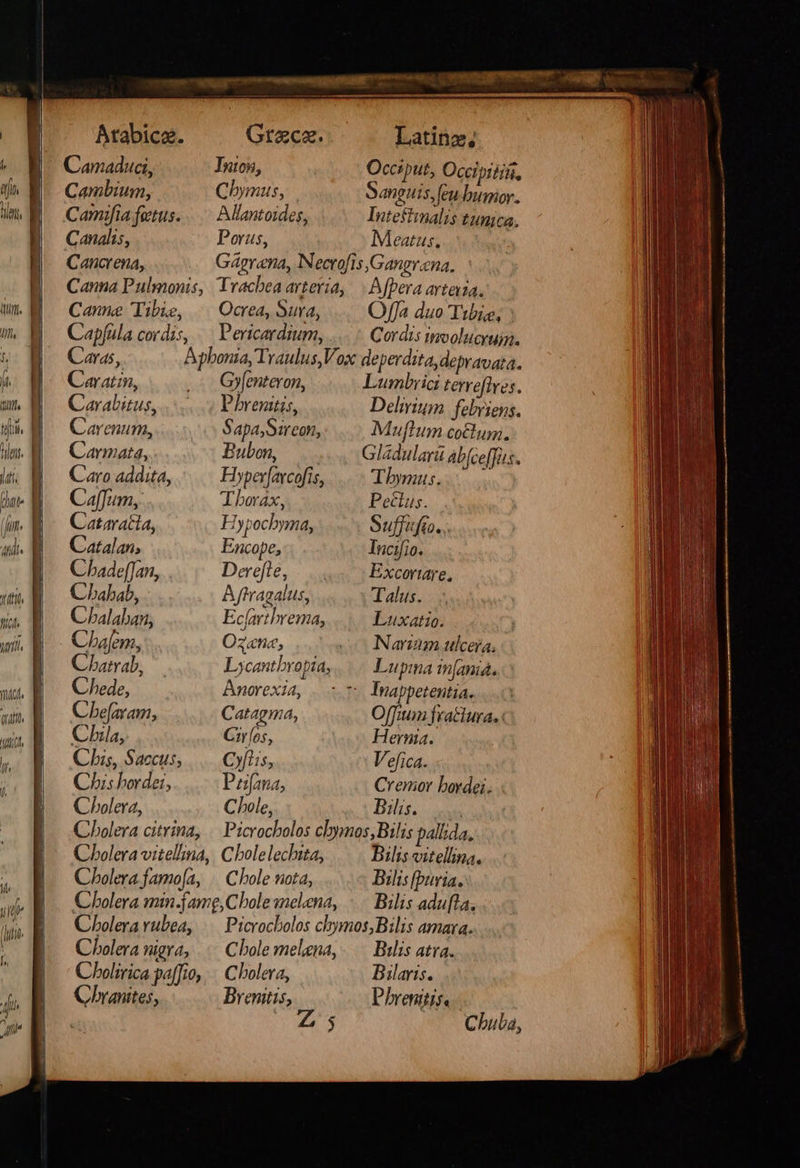 Arabicæ. Græcæ. Latinæ,
Camaduci, Inion, Occiput, Occipitiū,
Cambium, Chymus, Sanguis, ſeu humor.
Camiſia fœtus. Allantoides, Inteſtinalis tunica.
Canalis, Porus, Meatus,
Cancrena, Gāgræna, Necroſis, Gangræna.
Canna Pulmonis, Trachea arteria, Aſpera arteria.
Canne Tibiæ, Ocrea, Sura, Oſſa duo Tibiæ,
Capſula cordis, Pericardium, Cordis involucrum.
Caras, Aphonia, Traulus, Vox deperdita, depravata.
Caratin, Gyſenteron, Lumbrici terreſtres.
Carabitus, Phrenitis, Delirium febriens.
Carenum, Sapa, Sireon, Muſtum coctum.
Carmata, Bubon, Glādularū abſceſſus.
Caro addita, Hyperſarcoſis, Thymus.
Caſſum, Thorax, Pectus.
Cataracta, Hypochyma, Suffuſio.
Catalan, Encope, Inciſio.
Chadeſſan, Dereſte, Excoriare.
Chahab, Aſtragalus, Talus.
Chalaban, Ecſarthrema, Luxatio.
Chaſem, Ozænæ, Narium ulcera.
Chatrab, Lycanthropia, Lupina inſania.
Chede, Anorexia, Inappetentia.
Cheſaram, Catagma, Oſſium fractura.
Chila, Cirſos, Hernia.
Chis, Saccus, Cyſtis, Veſica.
Chis hordei, Ptiſana, Cremor hordei.
Cholera, Chole, Bilis.
Cholera citrina, Picrocholos chymos, Bilis pallida.
Cholera vitellina, Cholelechita, Bilis vitellina.
Cholera famoſa, Chole nota, Bilis ſpuria.
Cholera min.famę, Chole melæna, Bilis aduſta.
Cholera rubea, Picrocholos chymos, Bilis amara.
Cholera nigra, Chole melæna, Bilis atra.
Cholirica paſſio, Cholera, Bilaris.
Chranites, Brenitis, Phrenitis.
Z 5 Chuba,